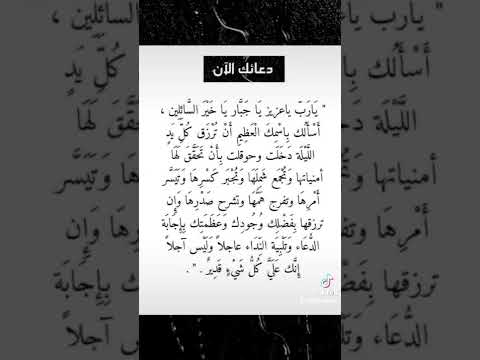 " يارب يا عزيز يا جبار يا خير السائلين ،
أَسْأَلُك بِاسْمِكَ
دعائك الآن
" يَارَبّ ياعزيز يَا جَبَّار يَا خَيْرَ السَّائِلِين ،
أَسْأَلُك بِاسْمِكَ الْعَظِيمِ أَنْ تُرْزَق كُلّ يَدٍ
اللَّيْلَة دَخَلَت وحوقلت بِأَنْ تَحَقَّقَ لَهَا
أمنياتها وَتُجْمَع شَمِلَهَا وَتُجْبَر كَسْرِهَا وَتَيَسَّر
أَمْرِهَا وتفرج هَمَّهَا وتشرح صَدْرِهَا وَإِن
ترزقها بِفَضْلِك وُجُودِك وَعَظَمَتِك بِإِجَابَة
الدُّعَاء وَتَلْبِيَة النِّدَاء عاجلاً وَلَيْس آجلاً
إِنَّك عَلَيَّ كُلُّ شَيْءٍ قَدِيرٌ . " .